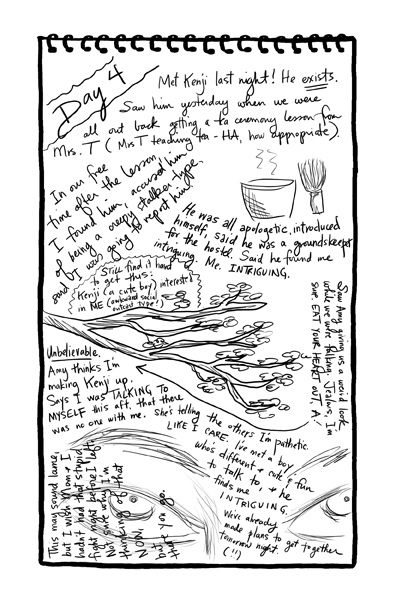 Day 4
Met Kenji last night! He exists.
Saw him yesterday when we were
all out back getting a tea ceremony lesson from
Mrs. T (Mrs T teaching tea - HA, how appropriate).
In our free
time after the lesson
I found him, accused him
of being a creepy stalker type,
said I was going to report him!
He was all apologetic, introduced
himself, said he was a groundskeeper
for the hostel. Said he found me
intriguing. Me. INTRIGUING.
STILL find it hard
to get this:
Kenji (a cute boy) interested
in ME (awkward social
outcast type)
Saw Amy giving us a weird look
while we were talking. Jealous, I'm
sure. EAT YOUR HEART OUT, A!
Unbelievable.
Amy thinks I'm
making Kenji up.
Says I was TALKING TO
MYSELF this aft, that there
was no one with me. She's telling the others I'm pathetic.
LIKE I CARE. I've met a boy
who's different & cute & fun
to talk to, & he
finds me
INTRIGUING.
We've already
made plans to get together
tomorrow night.
(!!)
This may sound lame,
but I wish Mom & I
hadn't had that stupid
fight right before I left.
Not sure why I'm
thinking of that
NOW,
but
there you go.